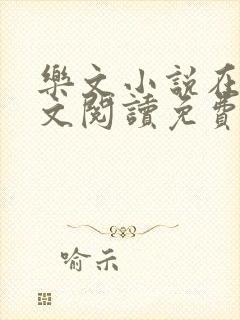 樂文小説在
文閱讀免費
喻示